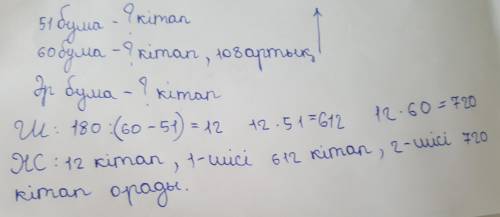 51 бума - ? кітап
60 бума - ? кітап, 108 артық
Әр бума - ? кітап
Ш: 180:(60-51)=12 12·51=612 12·60=720
ЖС: 12 кітап, 1-шісі 612 кітап, 2-шісі 720
кітап орады.